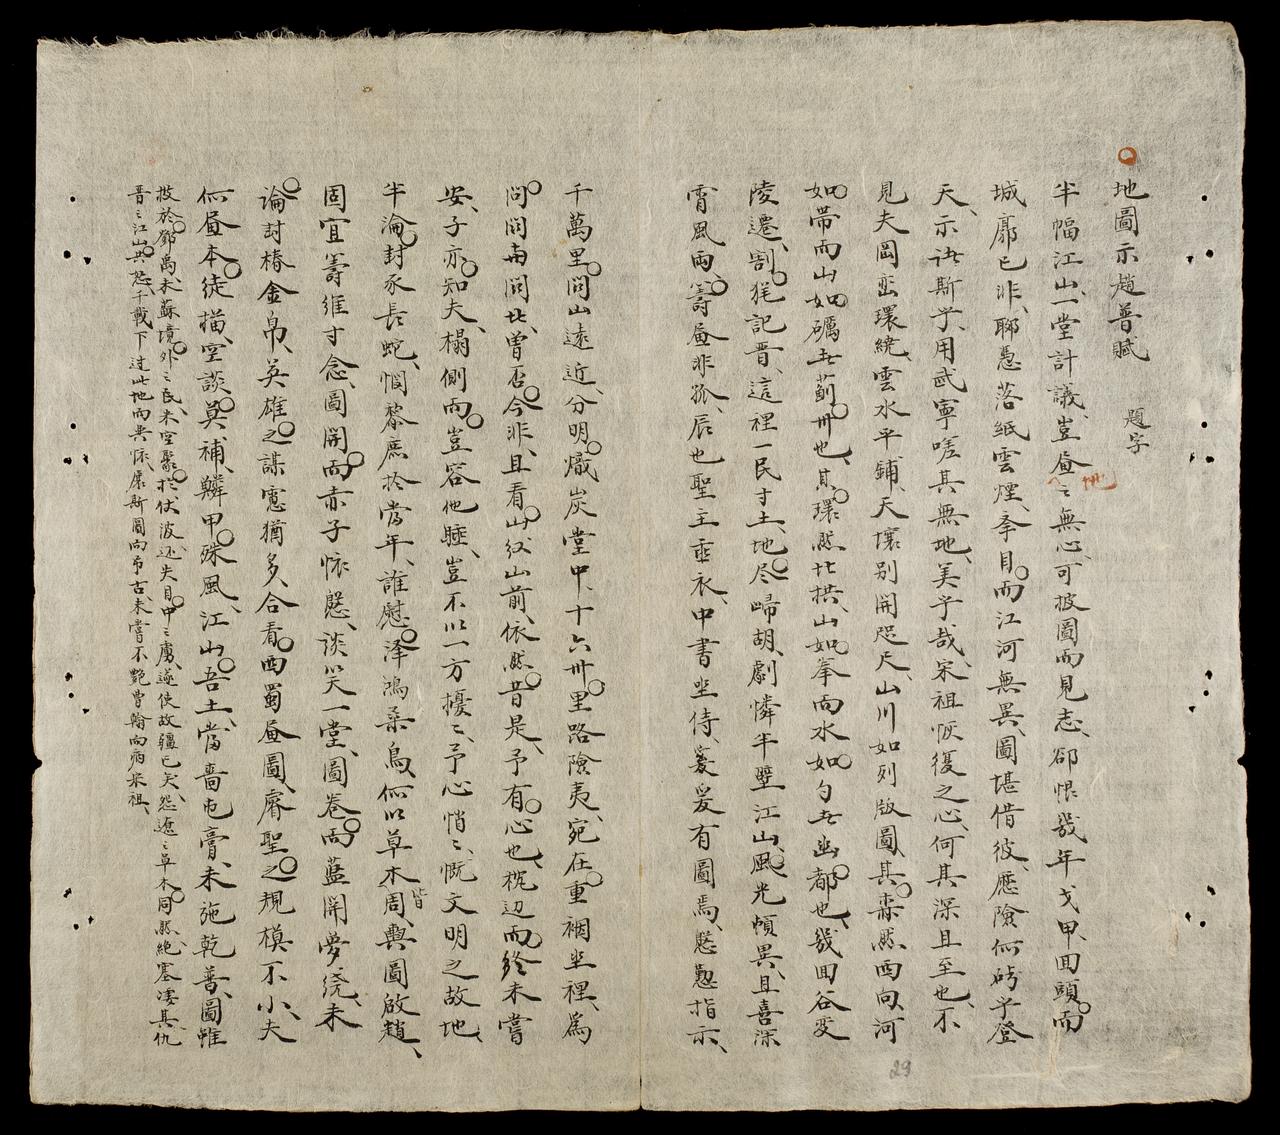 地圖示趙普賦 題字
半幅江山、一堂計議、豈晝之無心、可披圖而見志、卻恨幾年戈甲、回頭而
城廓已非、聊憑落紙雲煙、夅目而江河無異、圖堪借彼、應險何時乎登
天、示訖斯乎、用武寧嗟其無地、美乎哉、宋祖恢復之心、何其深且至也、不
見夫岡巒環繞、雲水平鋪、天壤别開咫尺、山川如列版圖、其森然西向、河
如帶而山如礪者薊州也、其環然北拱、山如拳而水如勺者幽都也、幾回谷变
陵遷、割宪記晋、這裡一民寸土、地尽歸胡、劇憐半壁江山、風光頓異、且喜深
宵風雨、籌畫非孤、辰也聖主垂衣、中書坐侍、爰爰有圖焉、慇懃指示、
千萬里問山遠近、分明熾炭堂中、十六州里路險夷、宛在重裀坐裡、爲
問問南問北、曾否今非、且看山紋山前、依然昔是、予有心也、枕边而終未嘗
安、子亦知夫、榻側而豈容他睡、豈不以一方擾〻、予心悄〻、慨文明之故地、
半淪封豕長蛇、憫黎庶於當年、誰慰澤鴻桑鳥、何以草木周皆、輿圖啟趙、
固宜籌維寸念、圖開而赤子怀慇、談笑一堂、圖卷而藍開夢繞、未
論封樁金帛、英雄之謀慮猶多、合看西蜀晝圖、睿聖之規模不小、夫
何晝本徒描、空談莫補、鱗甲殊風、江山吾土、當啬屯膏、未施乾普、圖帷
披於鄧禹、未蘇境外之民、米空聚於伏波、还失目中之虜、遂使故疆已矣、怨遼〻草木同然、絶塞凄其、仇
晋〻江山共怒、千載下过此地而興怀、展斯圖向吊古、未嘗不艷曹翰向病宋祖、
州
29